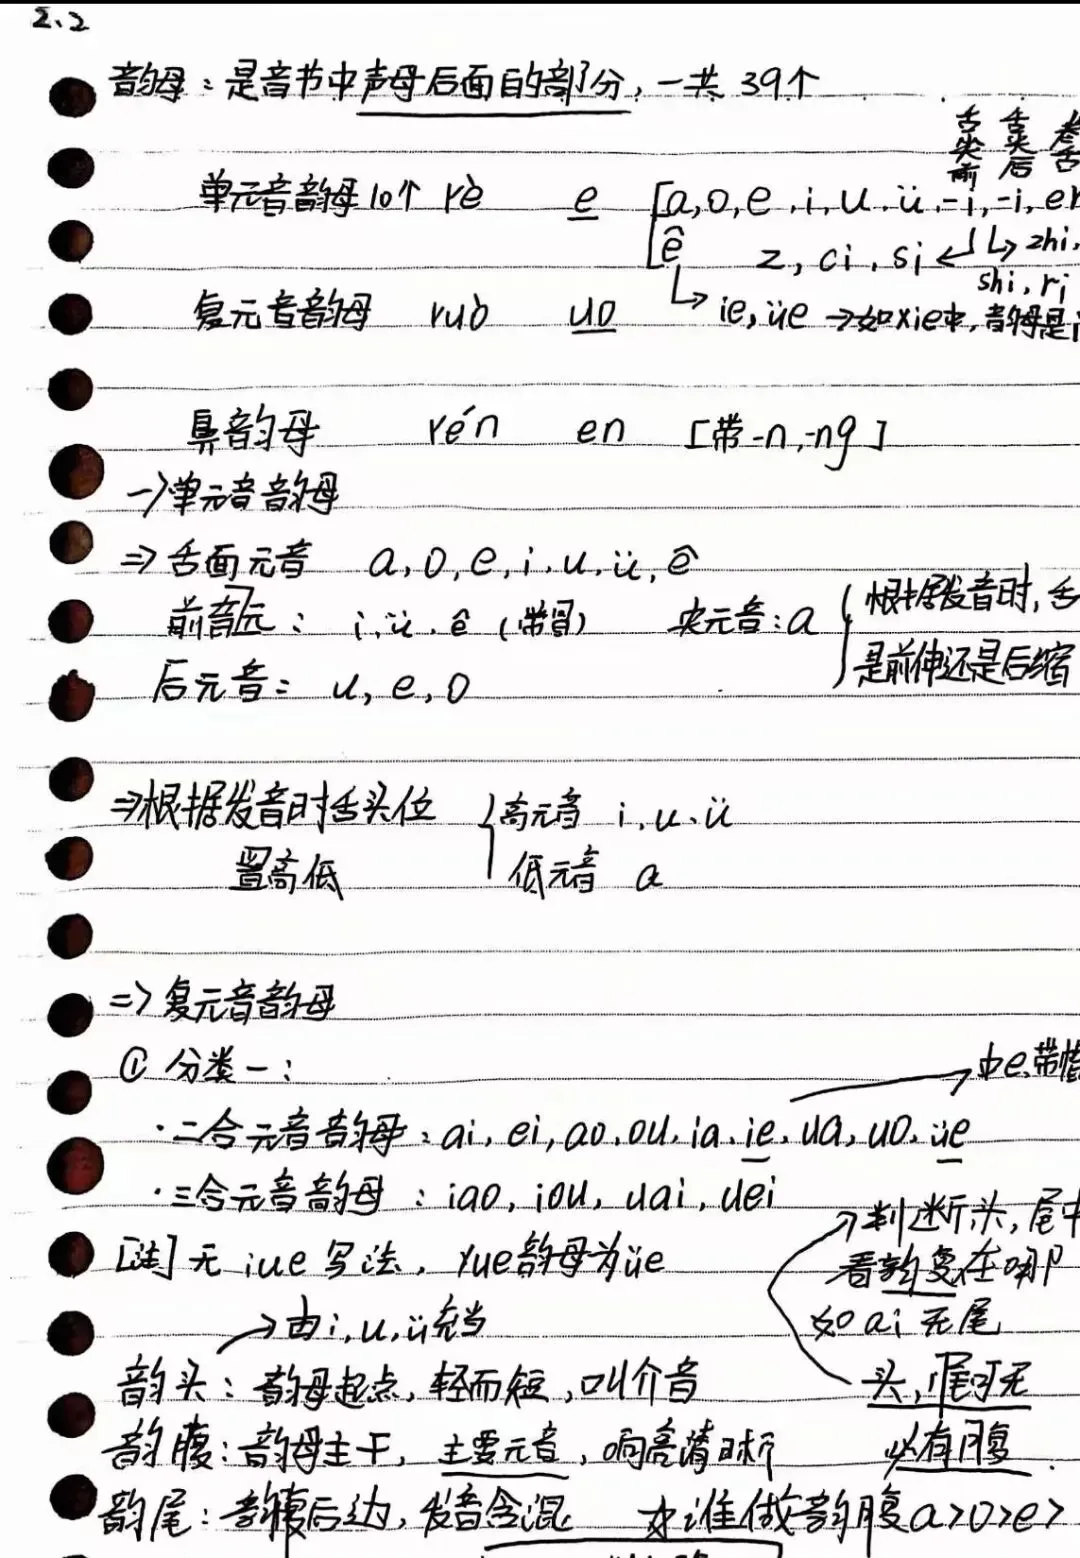 2.2
韵母：是音节中声母后面的部分，一共39个
舌尖前 舌尖后 卷舌
单元音韵母10个 rè e [a,o,e,i,u,ü,-i,-i,er
ê z,ci,si ↙ ↳ zhi,
shi,ri
复元音韵母 ruò uo ↳ ie,üe →如xie中,韵母是i
鼻韵母 rén en [带-n,-ng]
一>单元音韵母
⇒舌面元音 a,o,e,i,u,ü,ê
前音元：i,ü,ê(带冒) 央元音:a {根据发音时,舌
后元音：u,e,o 是前伸还是后缩
⇒根据发音时舌头位 {高元音 i,u,ü
置高低 低元音 a
=>复元音韵母
① 分类一：
→中e,带帽
·二合元音韵母：ai,ei,ao,ou,ia,ie,ua,uo,üe
·三合元音韵母：iao,iou,uai,uei
→判断头,尾中
[注]无iue写法，yue韵母为üe 看韵复在哪
→由i,u,ü充当 如ai无尾
韵头：韵母起点,轻而短,叫介音 头,尾可无
韵腹：韵母主干,主要元音,响亮清晰 必有腹
韵尾：韵腹后边,发音含混 谁做韵腹a>o>e>